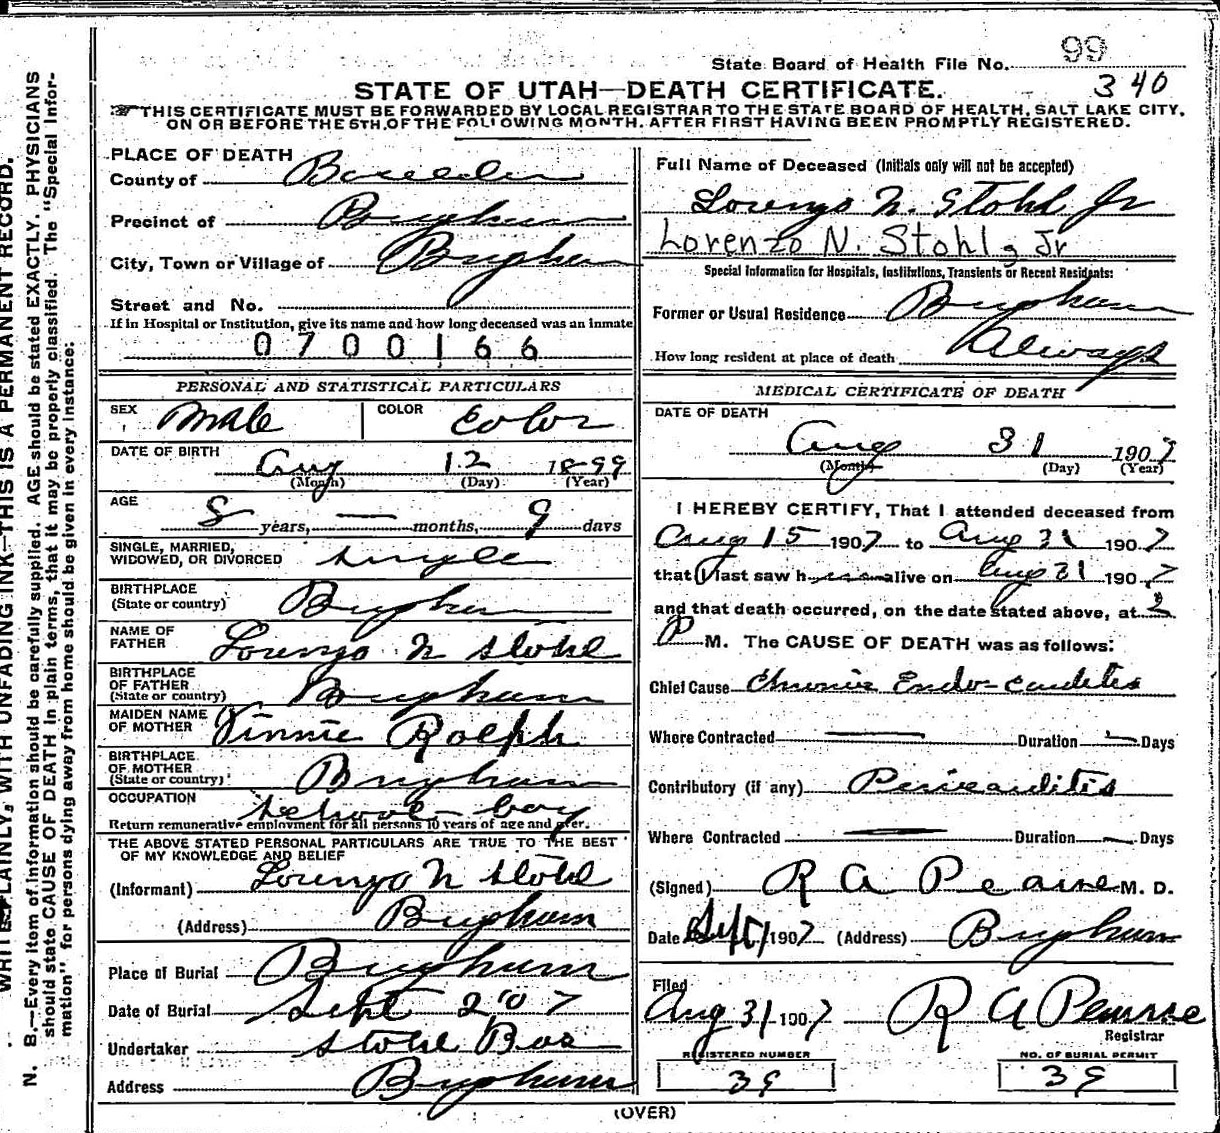 99
State Board of Health File No.
340
STATE OF UTAH—DEATH CERTIFICATE.
THIS CERTIFICATE MUST BE FORWARDED BY LOCAL REGISTRAR TO THE STATE BOARD OF HEALTH, SALT LAKE CITY,
ON OR BEFORE THE 5TH, OF THE FOLLOWING MONTH, AFTER FIRST HAVING BEEN PROMPTLY REGISTERED.
WRITE PLAINLY, WITH UNFADING INK—THIS IS A PERMANENT RECORD.
N. B.—Every item of information should be carefully supplied. AGE should be stated EXACTLY. PHYSICIANS
should state CAUSE OF DEATH in plain terms, that it may be properly classified. The "Special Infor-
mation" for persons dying away from home should be given in every instance:
PLACE OF DEATH
County of Boxelder
Precinct of Brigham
City, Town or Village of Brigham
Street and No.
If in Hospital or Institution, give its name and how long deceased was an inmate
0700166
PERSONAL AND STATISTICAL PARTICULARS
SEX Male COLOR Color
DATE OF BIRTH
Aug 12 1899
(Month) (Day) (Year)
AGE
8 years, — months, 9 days
SINGLE, MARRIED,
WIDOWED, OR DIVORCED single
BIRTHPLACE
(State or country) Brigham
NAME OF
FATHER Lorenzo N Stohl
BIRTHPLACE
OF FATHER
(State or country) Brigham
MAIDEN NAME
OF MOTHER Vinnie Rolph
BIRTHPLACE
OF MOTHER
(State or country) Brigham
OCCUPATION School-boy
Return remunerative employment for all persons 10 years of age and over.
THE ABOVE STATED PERSONAL PARTICULARS ARE TRUE TO THE BEST
OF MY KNOWLEDGE AND BELIEF
(Informant) Lorenzo N Stohl
(Address) Brigham
Place of Burial Brigham
Date of Burial Sept 2 '07
Undertaker Stohl Bros
Address Brigham
Full Name of Deceased (Initials only will not be accepted)
Lorenzo N. Stohl Jr
Lorenzo N. Stohl, Jr
Special Information for Hospitals, Institutions, Transients or Recent Residents:
Former or Usual Residence Brigham
How long resident at place of death Always
MEDICAL CERTIFICATE OF DEATH
DATE OF DEATH
Aug 31 1907
(Month) (Day) (Year)
I HEREBY CERTIFY, That I attended deceased from
Aug 15 1907 to Aug 31 1907
that I last saw h alive on Aug 31 1907
and that death occurred, on the date stated above, at 2
P M. The CAUSE OF DEATH was as follows:
Chief Cause Chronic Endo-carditis
Where Contracted — Duration — Days
Contributory (if any) Pericarditis
Where Contracted — Duration — Days
(Signed) R A Pearse M. D.
Date Sept 1 1907 (Address) Brigham
Filed
Aug 31 1907 R A Pearse
Registrar
REGISTERED NUMBER
39
NO. OF BURIAL PERMIT
39
(OVER)